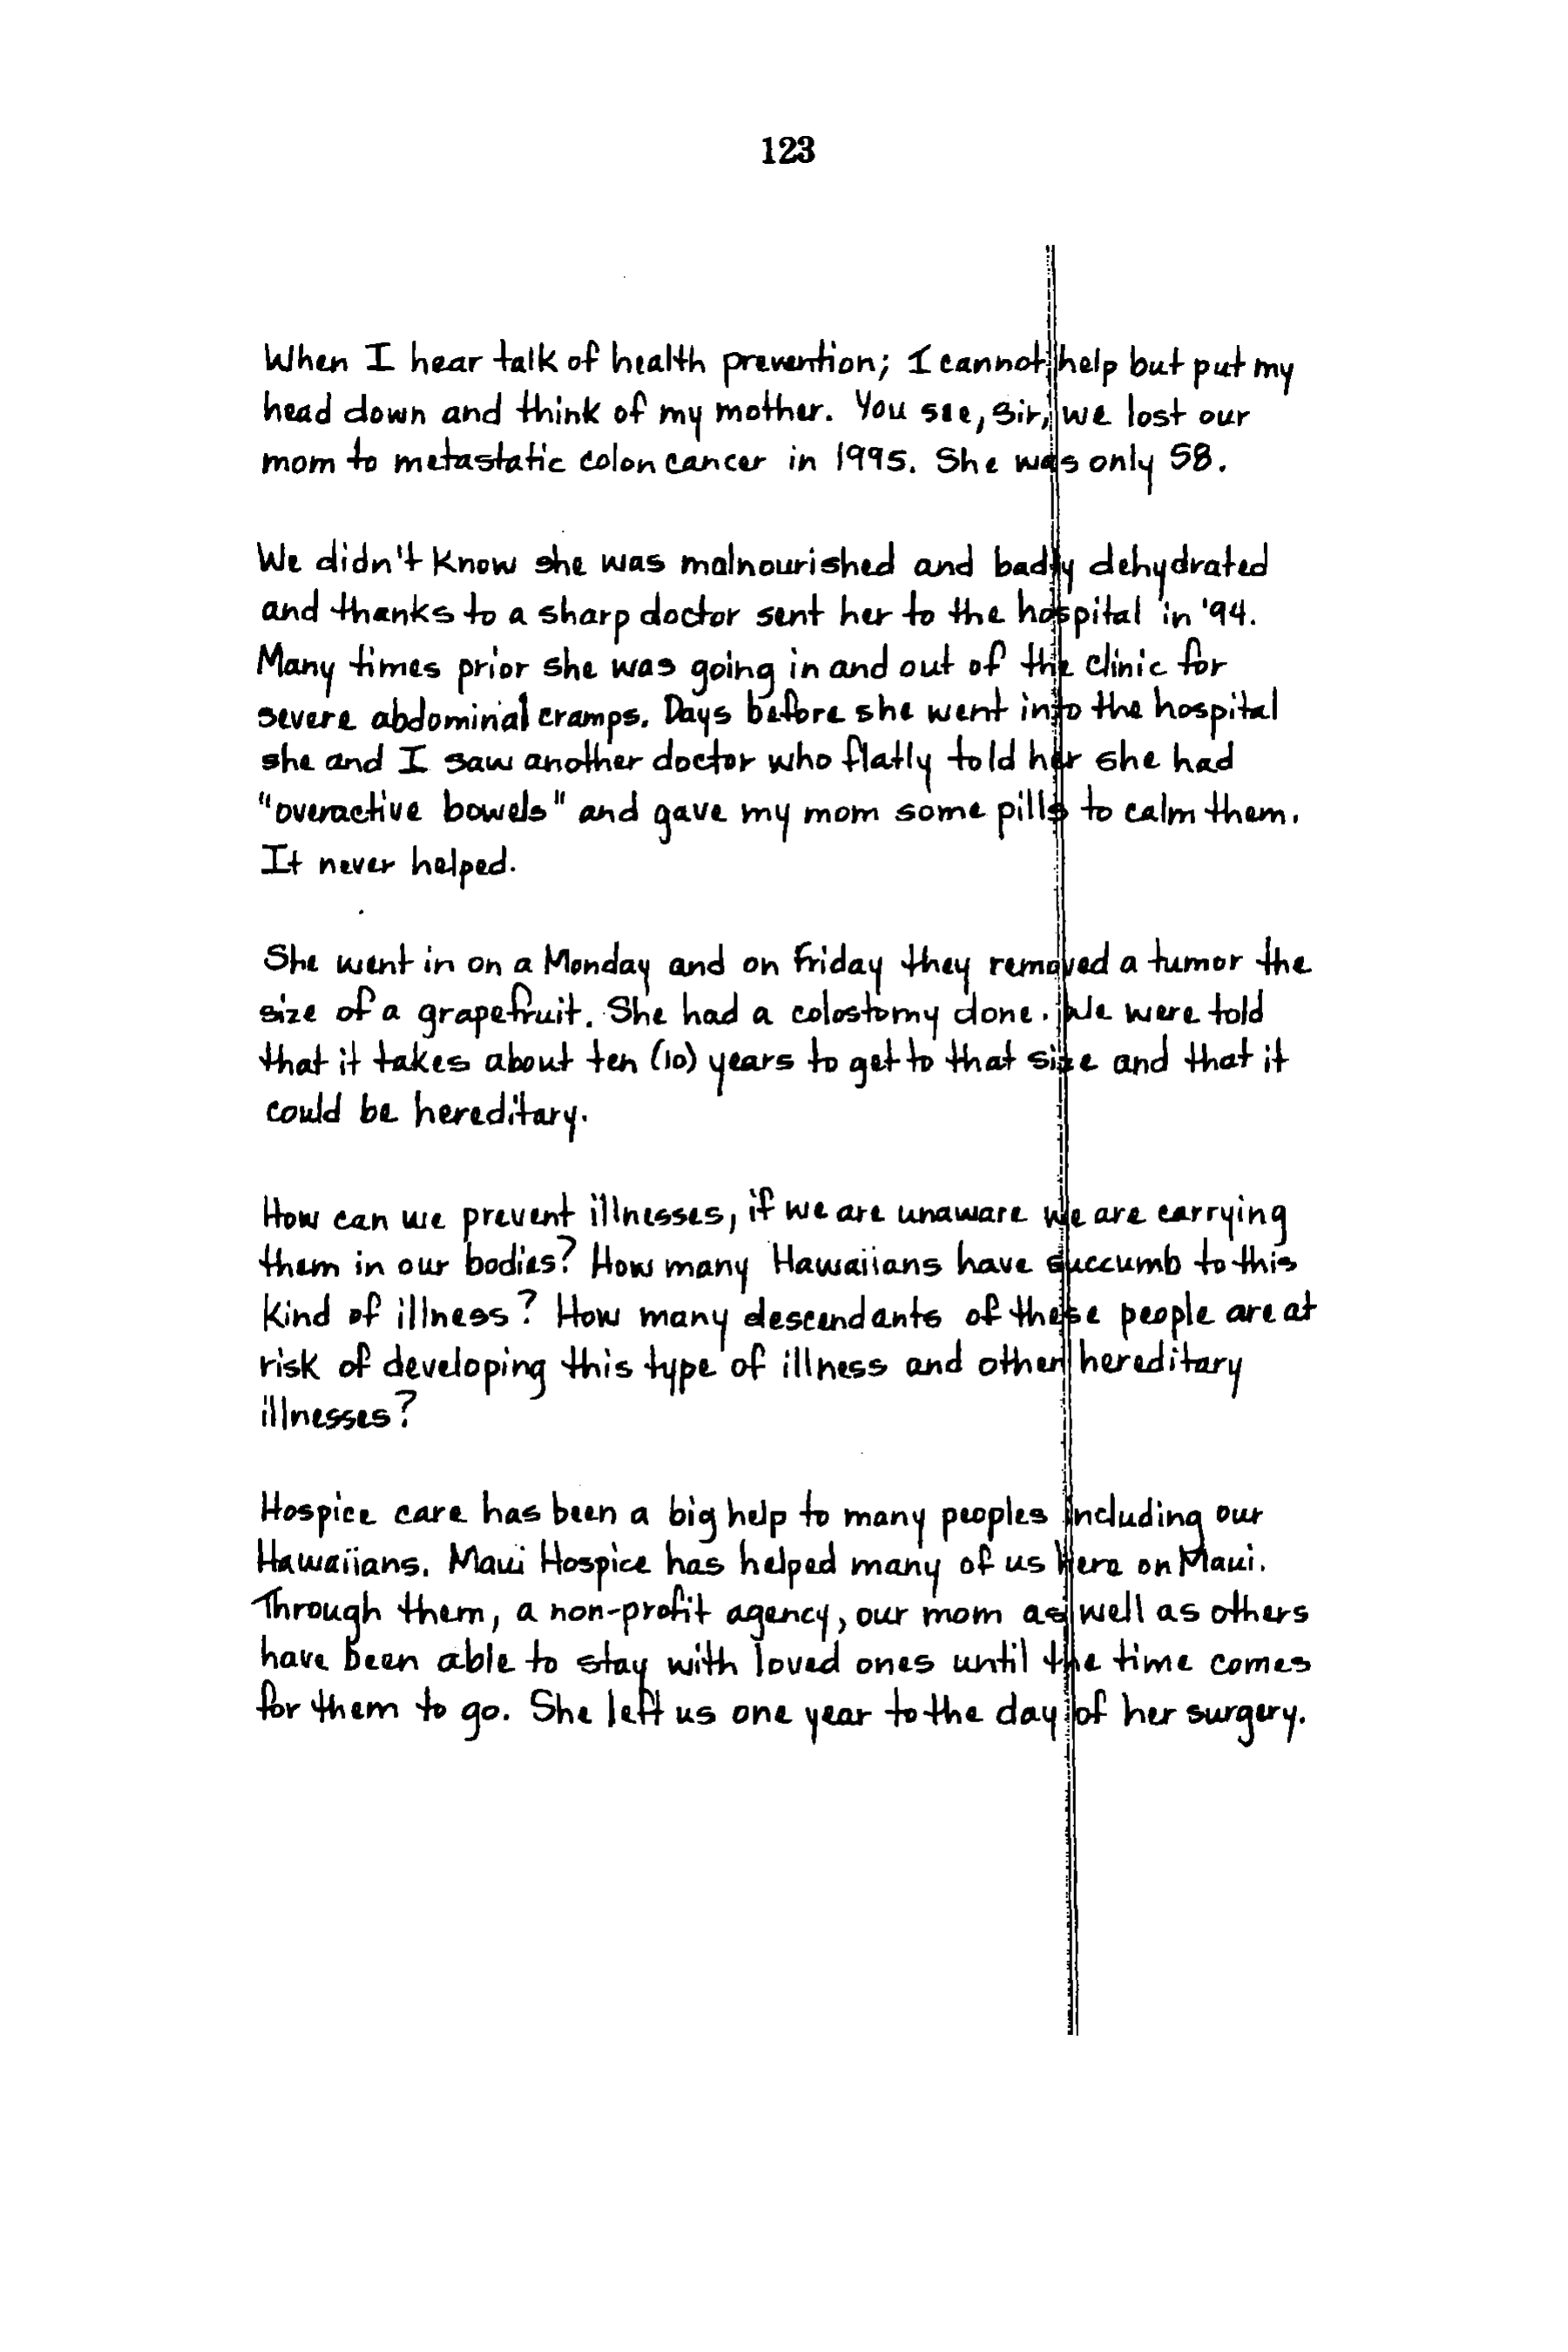 123
When I hear talk of health prevention; I cannot help but put my
head down and think of my mother. You see, Sir, we lost our
mom to metastatic colon cancer in 1995. She was only 58.
We didn't know she was malnourished and badly dehydrated
and thanks to a sharp doctor sent her to the hospital in '94.
Many times prior she was going in and out of the clinic for
severe abdominal cramps. Days before she went into the hospital
she and I saw another doctor who flatly told her she had
"overactive bowels" and gave my mom some pills to calm them.
It never helped.
She went in on a Monday and on Friday they removed a tumor the
size of a grapefruit. She had a colostomy done. We were told
that it takes about ten (10) years to get to that size and that it
could be hereditary.
How can we prevent illnesses, if we are unaware we are carrying
them in our bodies? How many Hawaiians have succumb to this
kind of illness? How many descendants of these people are at
risk of developing this type of illness and other hereditary
illnesses?
Hospice care has been a big help to many peoples including our
Hawaiians. Maui Hospice has helped many of us here on Maui.
Through them, a non-profit agency, our mom as well as others
have been able to stay with loved ones until the time comes
for them to go. She left us one year to the day of her surgery.